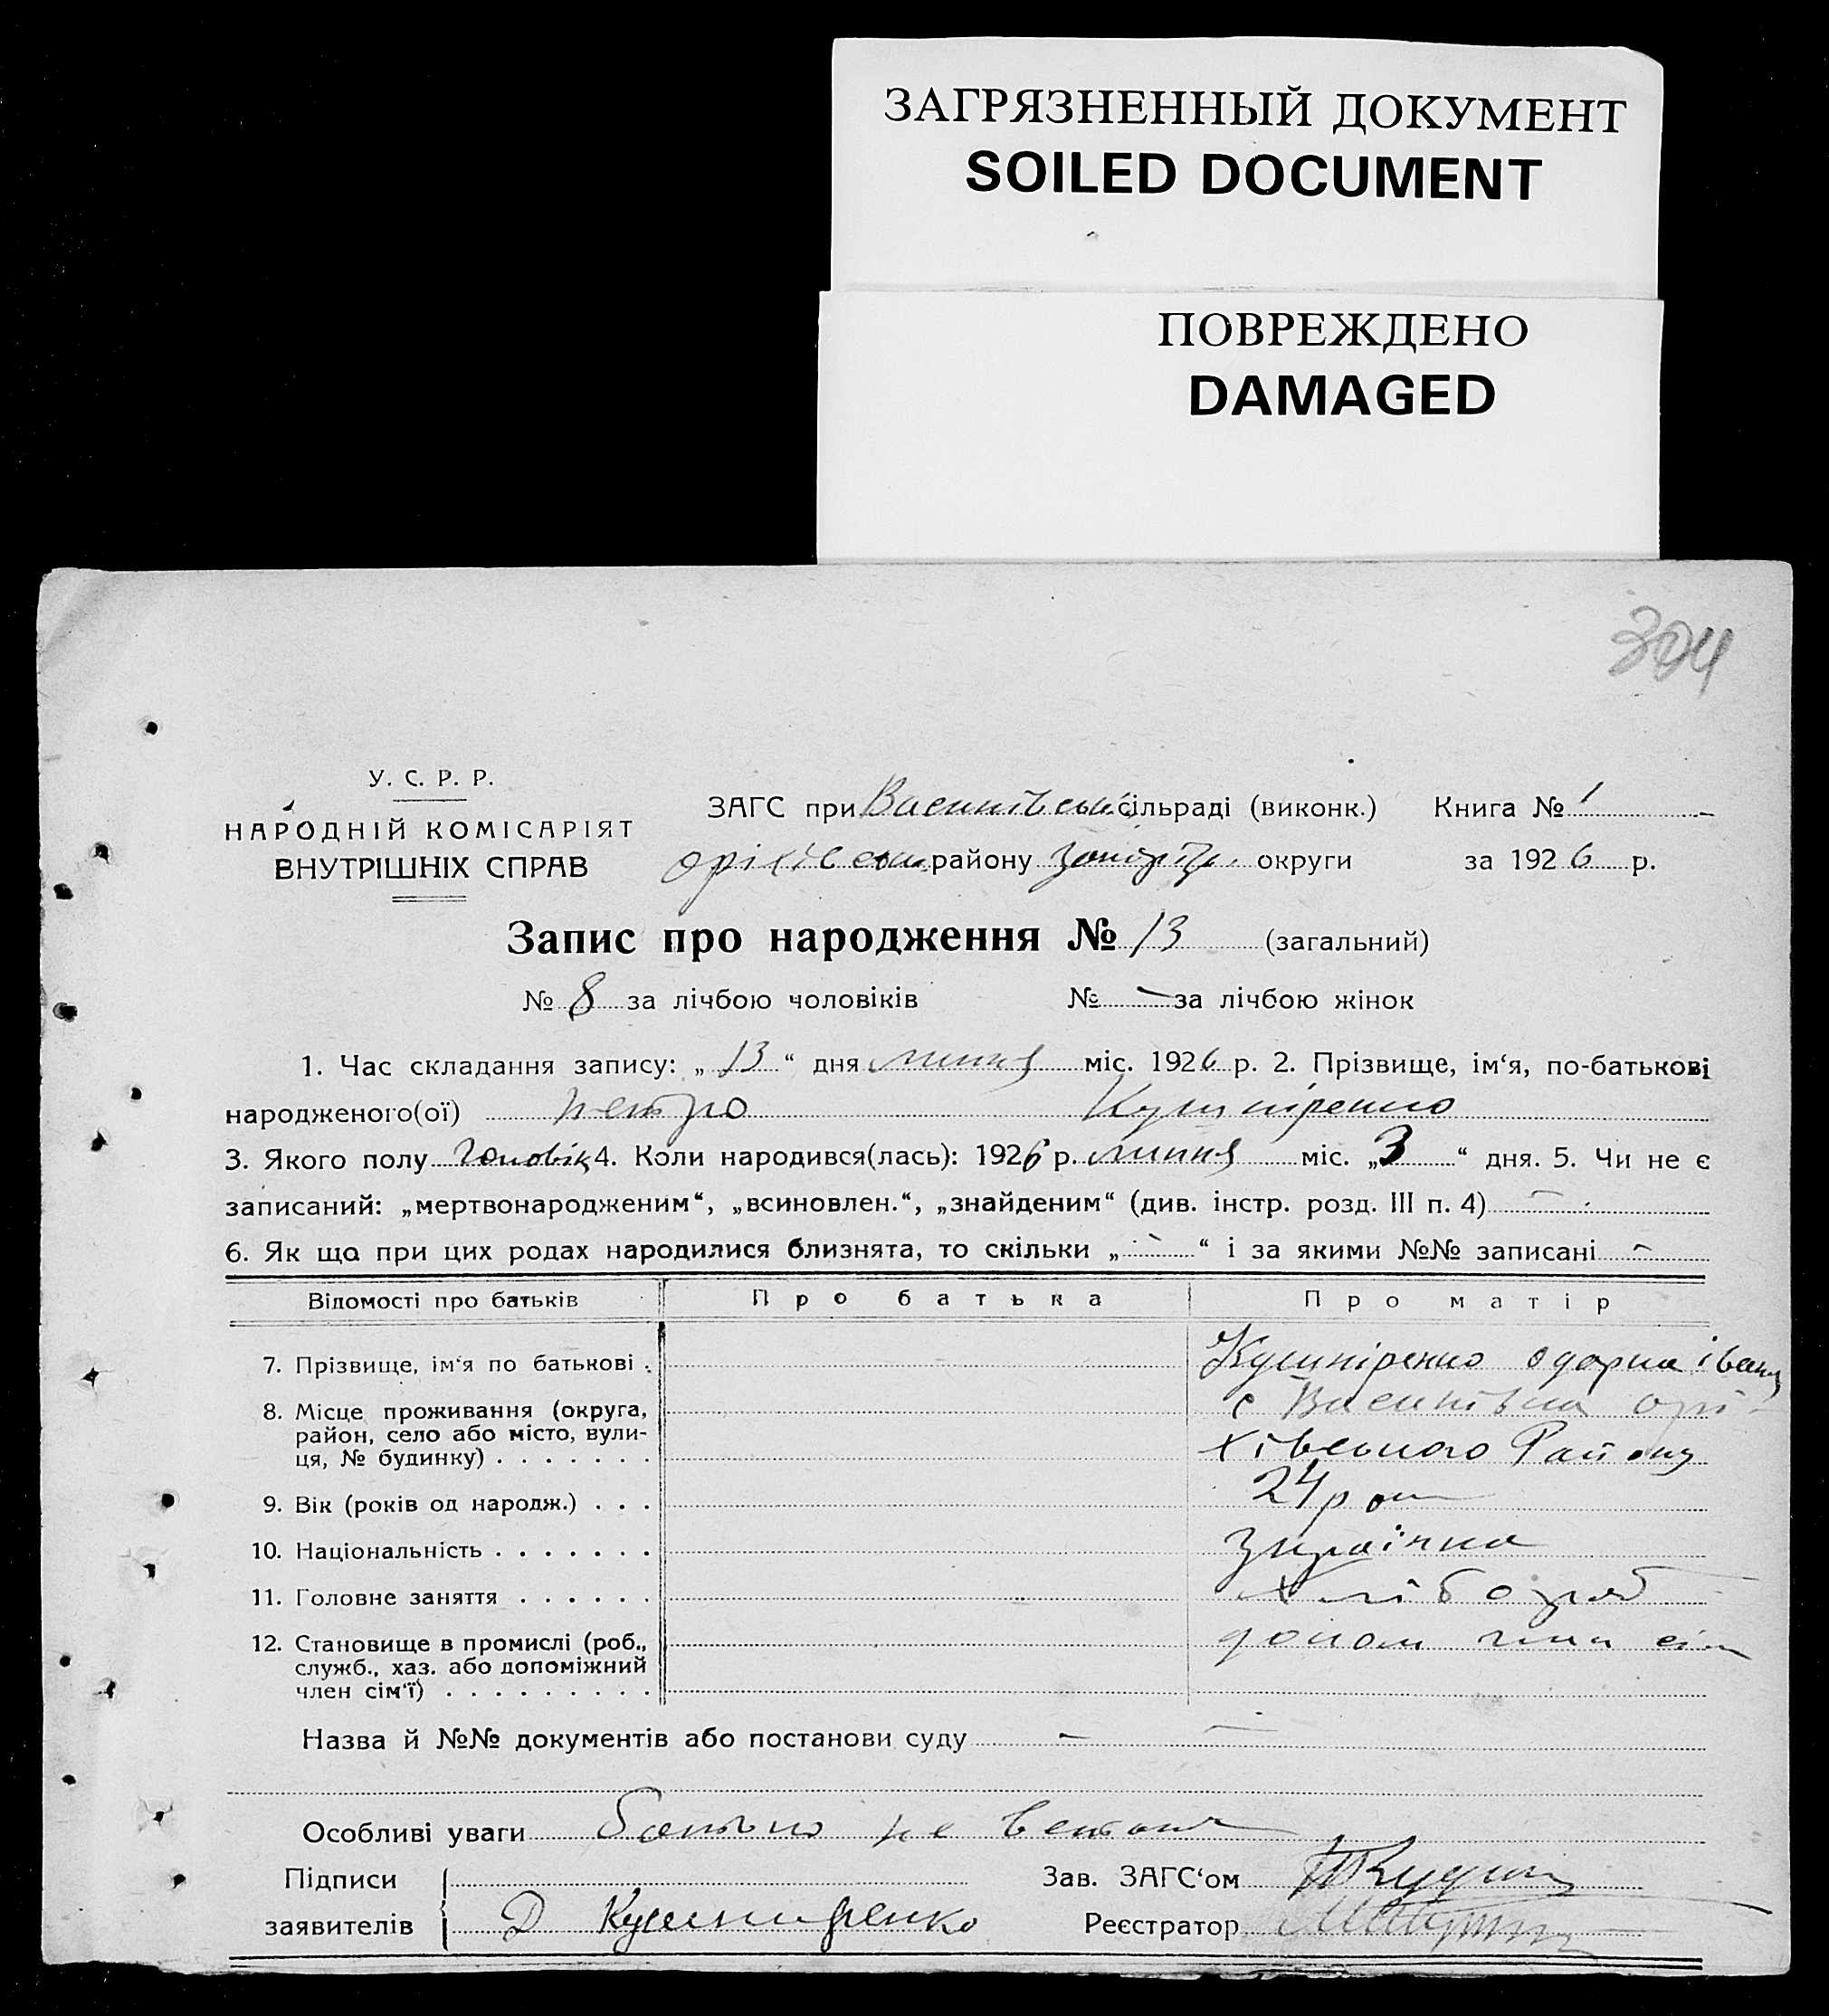 ЗАГРЯЗНЕННЫЙ ДОКУМЕНТ
SOILED DOCUMENT
ПОВРЕЖДЕНО
DAMAGED
304
У. С. Р. Р.
НАРОДНІЙ КОМІСАРІЯТ
ВНУТРІШНІХ СПРАВ
ЗАГС при Васинівськ. сільраді (виконк.) Книга № 1
Оріхівськ. району Запоріз. округи за 1926 р.
Запис про народження № 13 (загальний)
№ 8 за лічбою чоловіків № — за лічбою жінок
1. Час складання запису: „13“ дня липня міс. 1926 р. 2. Прізвище, ім‘я, по-батькові
народженого(ої) Петро Кушніренко
3. Якого полу чоловік 4. Коли народився(лась): 1926 р. липня міс. „3“ дня. 5. Чи не є
записаний: „мертвонародженим“, „всиновлен.“, „знайденим“ (див. інстр. розд. III п. 4) —
6. Як що при цих родах народилися близнята, то скільки „—“ і за якими №№ записані —
Відомості про батьків Про батька Про матір
7. Прізвище, ім‘я по батькові . Кушніренко Одарка Іван
8. Місце проживання (округа, с Васинівка Орі-
район, село або місто, вули-
ця, № будинку) . . . . . . . хівського Району
9. Вік (років од народж.) . . . 24 рок
10. Національність . . . . . . . Українка
11. Головне заняття . . . . . . Хлібороб
12. Становище в промислі (роб., допом член сім
служб., хаз. або допоміжний
член сім‘ї) . . . . . . . . .
Назва й №№ документів або постанови суду — —
Особливі уваги батько не
Підписи Зав. ЗАГС‘ом
заявителів Д Кушниренко Реєстратор